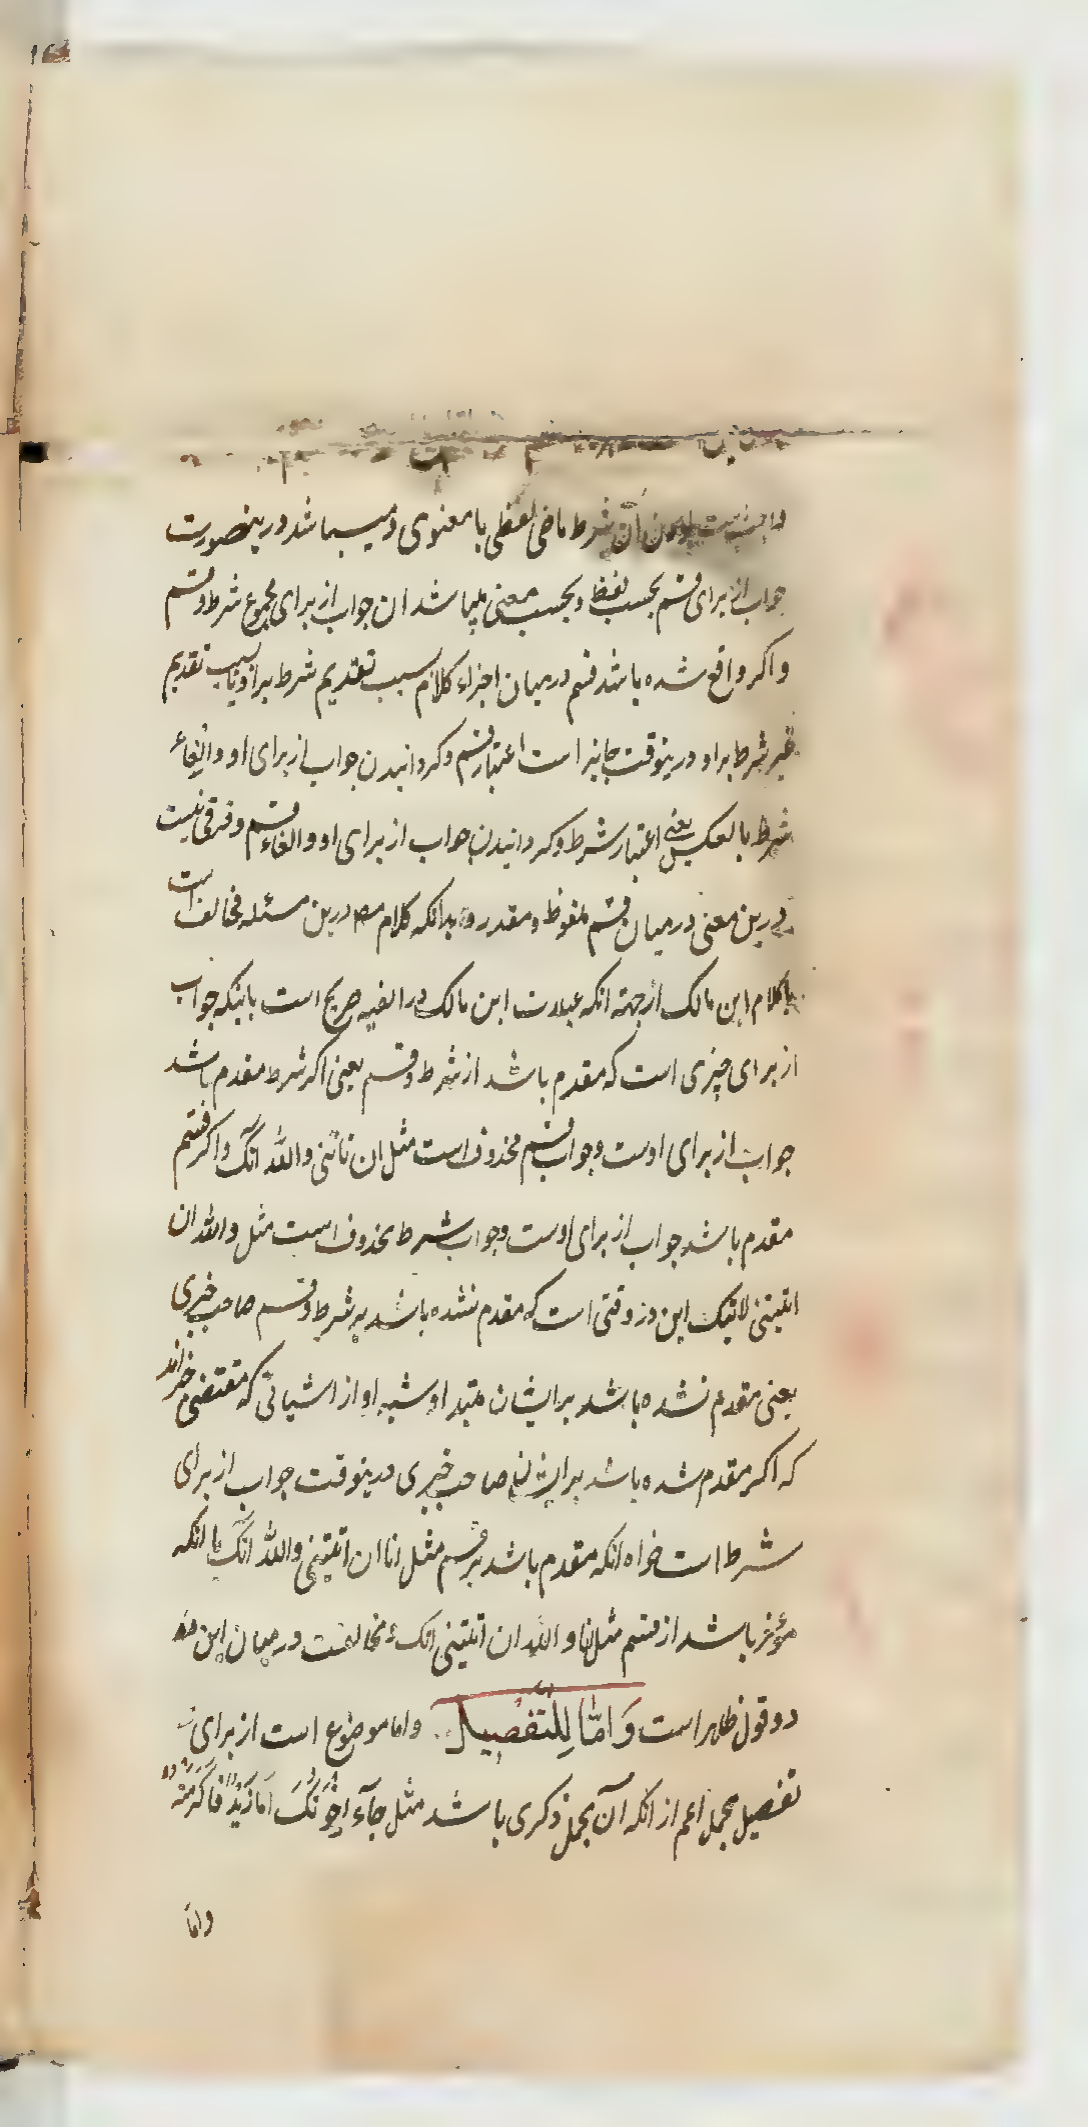 واجبست بودن آن شرط ماضی لفظی یا معنوی و میباشد درینصورت
جواب از برای قسم بحسب لفظ و بحسب معنی میباشد ان جواب از برای مجموع شرط و قسم
و اکر واقع شده باشد قسم درمیان اجزاء کلام بسبب تقدیم شرط براو یا بسبب تقدیم
غیر شرط براو درینوقت جایز است اعتبار قسم و کردانیدن جواب از برای او و الغاء
شرط یا بالعکس یعنی اعتبار شرط و کردانیدن جواب از برای او و الغاء قسم و فرقی نیست
درین معنی درمیان قسم ملفوظ و مقدر بدانکه کلام مصـ درین مسئله مخالف است
با کلام ابن مالک از جهة انکه عبارت ابن مالک در الفیه صریح است باینکه جواب
از برای چیزی است که مقدم باشد از شرط و قسم یعنی اکر شرط مقدم باشد
جواب از برای اوست و جواب قسم محذوف است مثل ان تاتنی والله آتک و اکر قسم
مقدم باشد جواب از برای اوست و جواب شرط محذوف است مثل والله ان
اتیتنی لاتیک این در وقتی است که مقدم نشده باشد بر شرط و قسم صاحب خبری
یعنی مقدم نشده باشد برایشان مبتدا و شبه او از اشیائی که مقتضی خبراند
که اکر مقدم شده باشد برایشان صاحب خبری درینوقت جواب از برای
شرط است خواه انکه مقدم باشد بر قسم مثل انا ان اتیتنی والله آتک یا انکه
مؤخر باشد از قسم مثل انا والله ان اتیتنی اتک مخالفت درمیان این
دو قول ظاهر است وَاَمّا لِلتَّفصیلِ و اما موضوع است از برای
تفصیل مجمل اعم از انکه آن مجمل ذکری باشد مثل جآء اِخوَتُکَ اَمّا زَیدٌ فاکرمته
و امّا